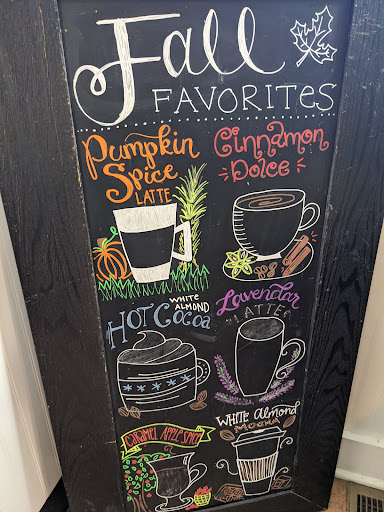 Fall
FAVORITES
Pumpkin
Spice
LATTE
Cinnamon
Dolce
WHITE
ALMOND
HOT Cocoa
Lavendar
LATTE
CARAMEL APPLE SPICE
WHITE Almond
MOCHA